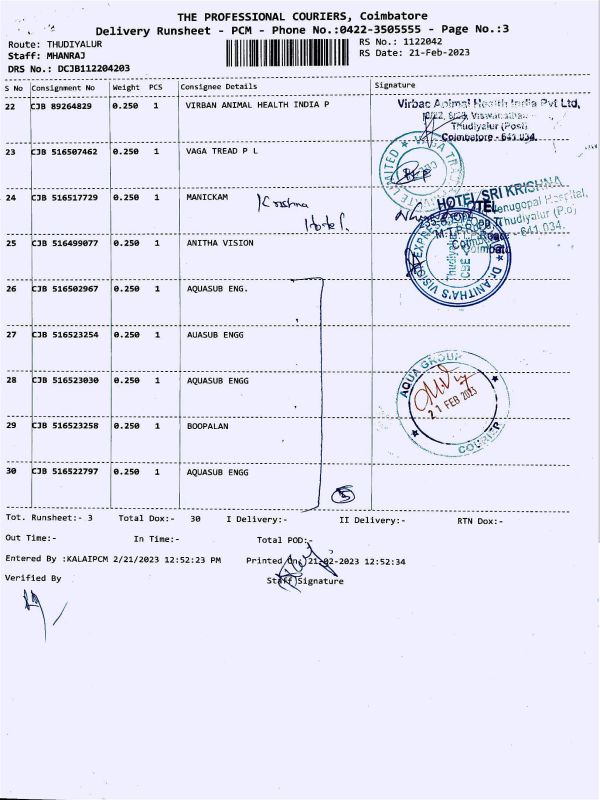 THE PROFESSIONAL COURIERS, Coimbatore
Delivery Runsheet - PCM - Phone No.:0422-3505555 - Page No.:3
Route: THUDIYALUR
RS No.: 1122042
Staff: MHANRAJ
RS Date: 21-Feb-2023
DRS No.: DCJB112204203
S No Consignment No Weight PCS Consignee Details Signature
22 CJB 89264829 0.250 1 VIRBAN ANIMAL HEALTH INDIA P
Virbac Animal Health India Pvt Ltd,
Thudiyalur (Post)
Coimbatore - 641 034.
23 CJB 516507462 0.250 1 VAGA TREAD P L
24 CJB 516517729 0.250 1 MANICKAM
Krishna
Hotel.
HOTEL SRI KRISHNA
HOTEL
Venugopal Hospital,
M.T.P. Road Thudiyalur (P.o)
Coimbatore - 641 034.
25 CJB 516499077 0.250 1 ANITHA VISION
Dr.ANITHA'S VISION EXPRESS
Thudiyalur
CBE
26 CJB 516502967 0.250 1 AQUASUB ENG.
27 CJB 516523254 0.250 1 AUASUB ENGG
28 CJB 516523030 0.250 1 AQUASUB ENGG
AQUA GROUP
21 FEB 2023
COURIER
29 CJB 516523258 0.250 1 BOOPALAN
30 CJB 516522797 0.250 1 AQUASUB ENGG
5
Tot. Runsheet:- 3 Total Dox:- 30 I Delivery:- II Delivery:- RTN Dox:-
Out Time:- In Time:- Total POD:-
Entered By :KALAIPCM 2/21/2023 12:52:23 PM Printed On: 21-02-2023 12:52:34
Verified By Staff Signature